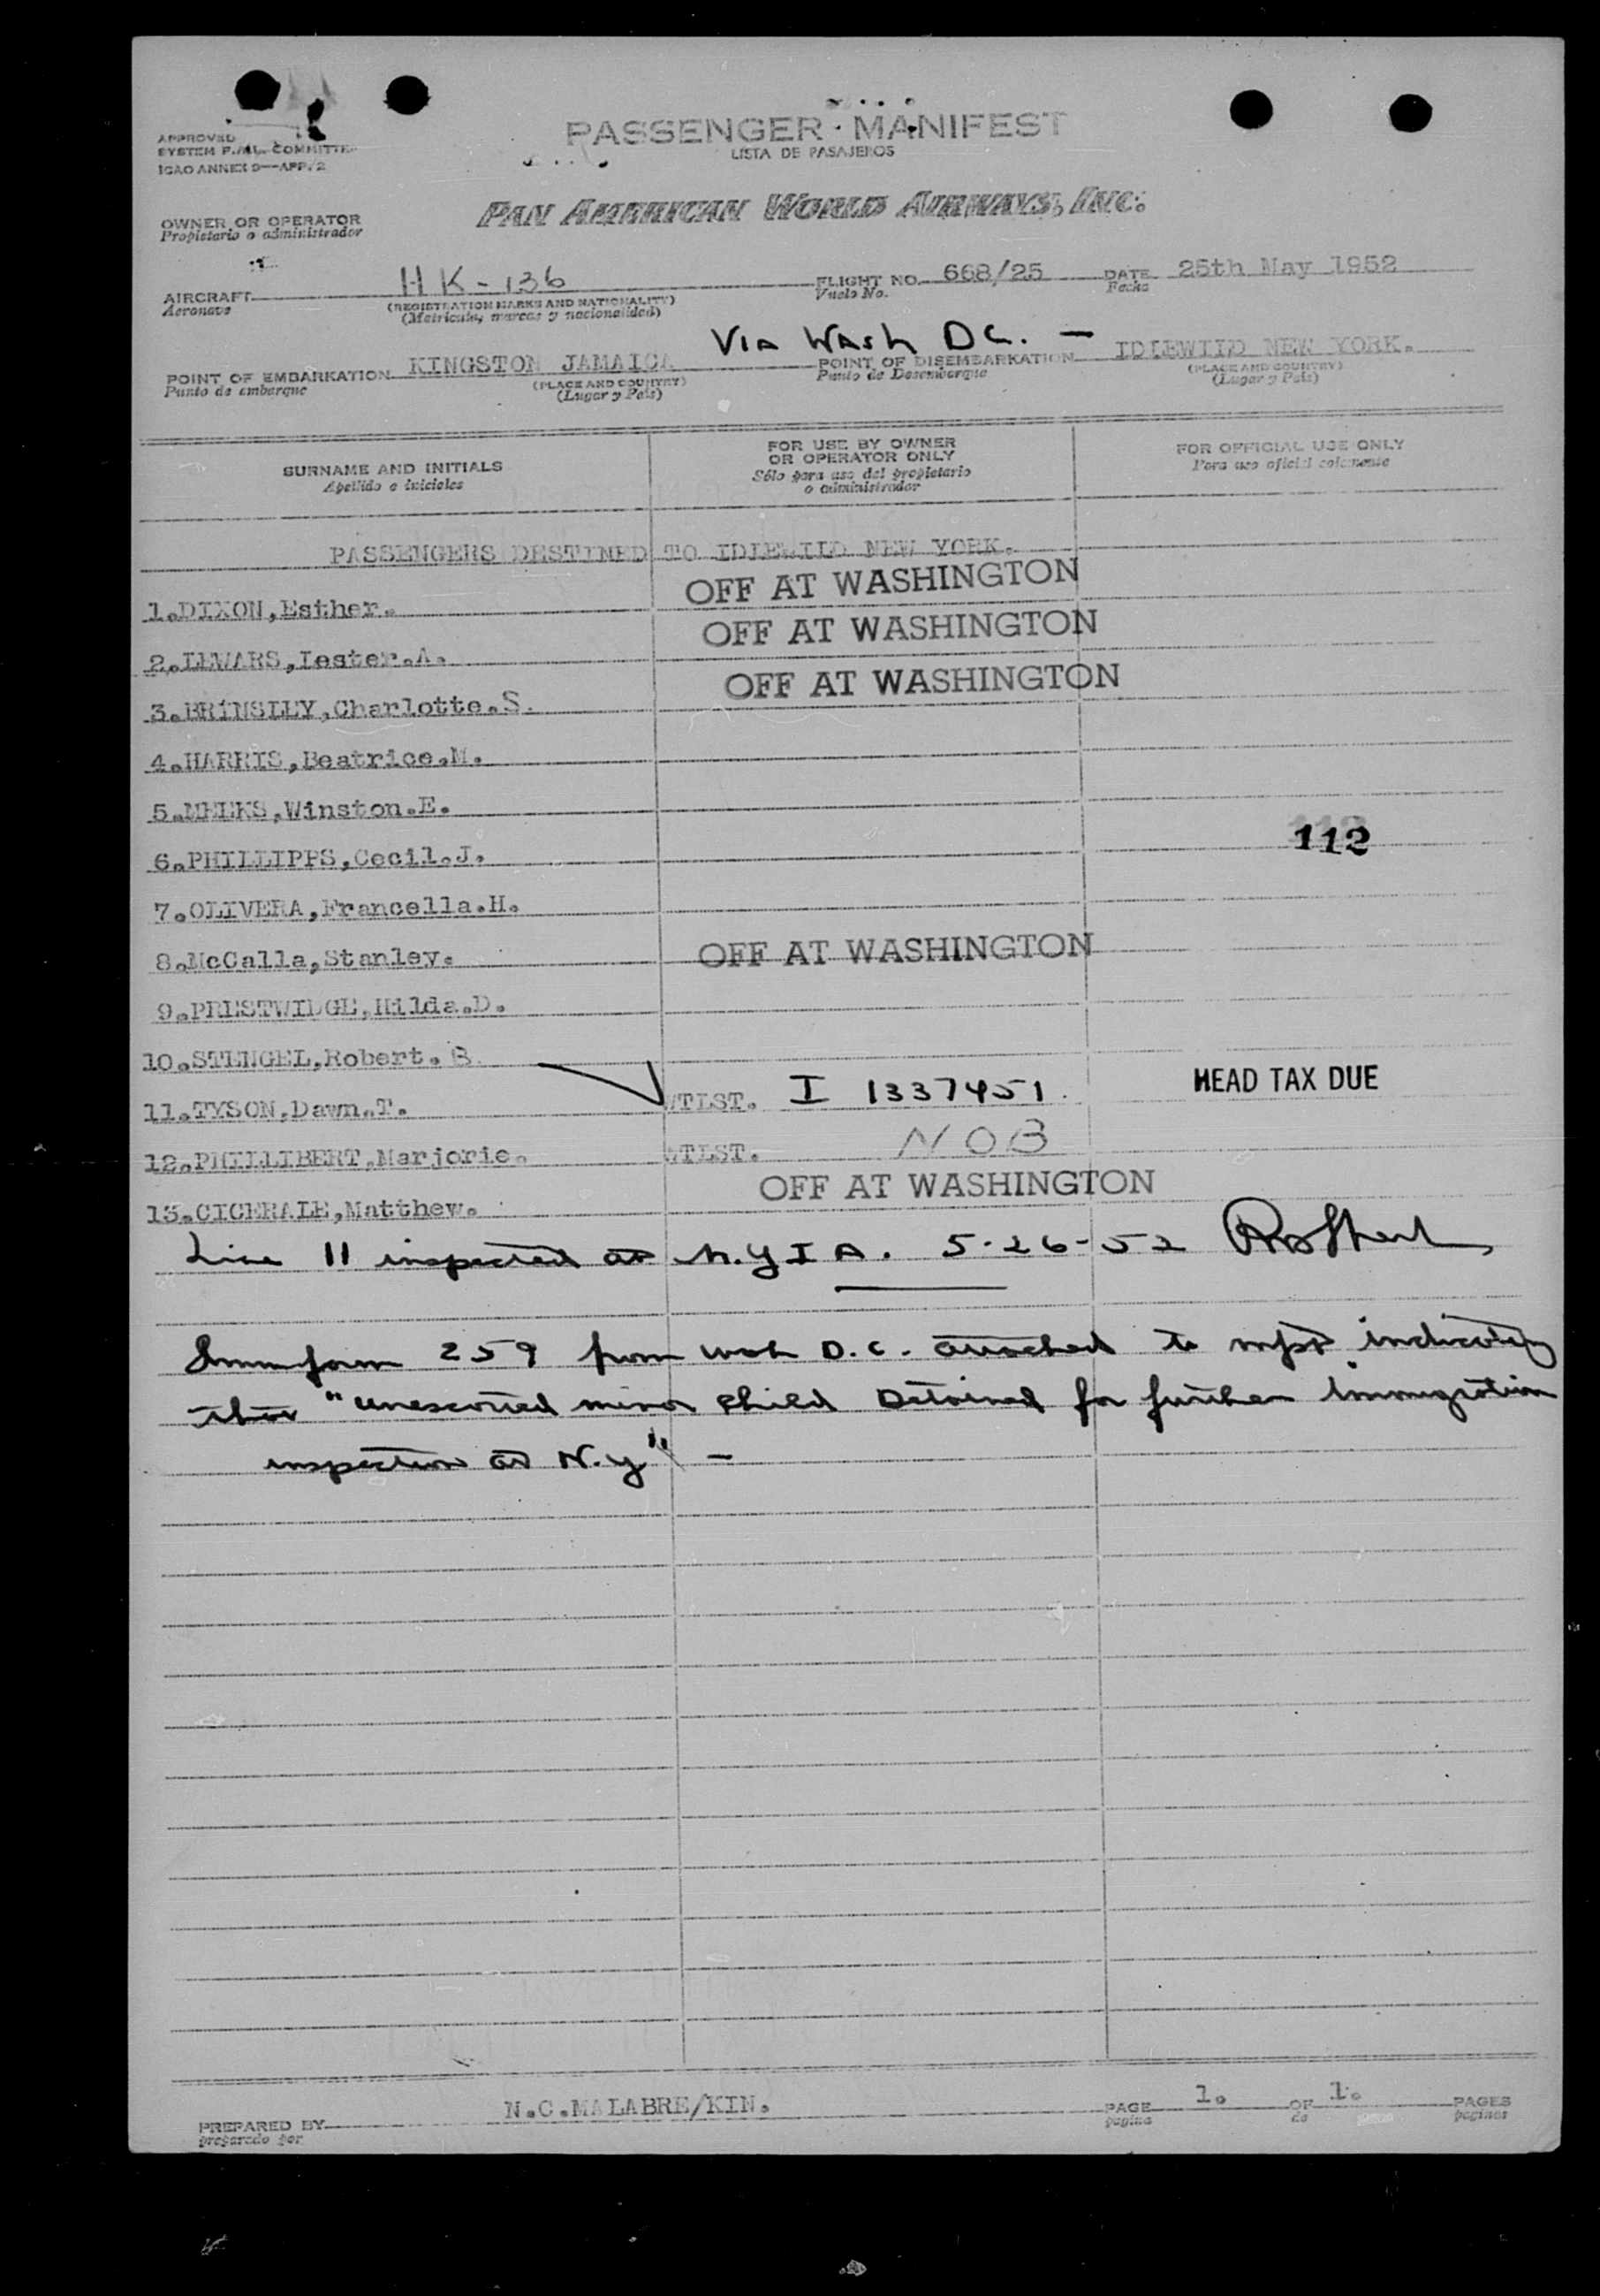 APPROVED
SYSTEM COMMITTE
ICAO ANNEX 9—APP. 2
PASSENGER MANIFEST
LISTA DE PASAJEROS
OWNER OR OPERATOR
Propietario o administrador
PAN AMERICAN WORLD AIRWAYS, INC.
AIRCRAFT HK-136 FLIGHT NO. 668/25 DATE 25th May 1952
Aeronave (REGISTRATION MARKS AND NATIONALITY) Vuelo No. Fecha
(Matricula, marcas y nacionalidad)
VIA WASH DC. —
POINT OF EMBARKATION KINGSTON JAMAICA POINT OF DISEMBARKATION IDLEWILD NEW YORK.
Punto de embarque (PLACE AND COUNTRY) Punto de Desembarque (PLACE AND COUNTRY)
(Lugar y País) (Lugar y País)
SURNAME AND INITIALS
Apellido e iniciales
FOR USE BY OWNER
OR OPERATOR ONLY
Sólo para uso del propietario
o administrador
FOR OFFICIAL USE ONLY
Para uso oficial solamente
PASSENGERS DESTINED TO IDLEWILD NEW YORK.
1.DIXON,Esther. OFF AT WASHINGTON
2.LEWARS,Lester.A. OFF AT WASHINGTON
3.BRINSLEY,Charlotte.S. OFF AT WASHINGTON
4.HARRIS,Beatrice.M.
5.MEEKS,Winston.E.
6.PHILLIPPS,Cecil.J. 112
7.OLIVERA,Francella.H.
8.McCalla,Stanley. OFF AT WASHINGTON
9.PRESTWIDGE,Hilda.D.
10.STENGEL,Robert. B.
11.TYSON,Dawn.T. WTLST. I 1337451. HEAD TAX DUE
12.PHILLIBERT,Marjorie. WTLST. NOB
13.CICERALE,Matthew. OFF AT WASHINGTON
Line 11 inspected at N.Y I A. 5-26-52
form 259 from Wash D.C. attached to mfst indicating
that "unescorted minor child Detained for further immigration
inspection at N.Y" —
PREPARED BY N.C.MALABRE/KIN. PAGE 1. OF 1. PAGES
preparado por pagina de paginas